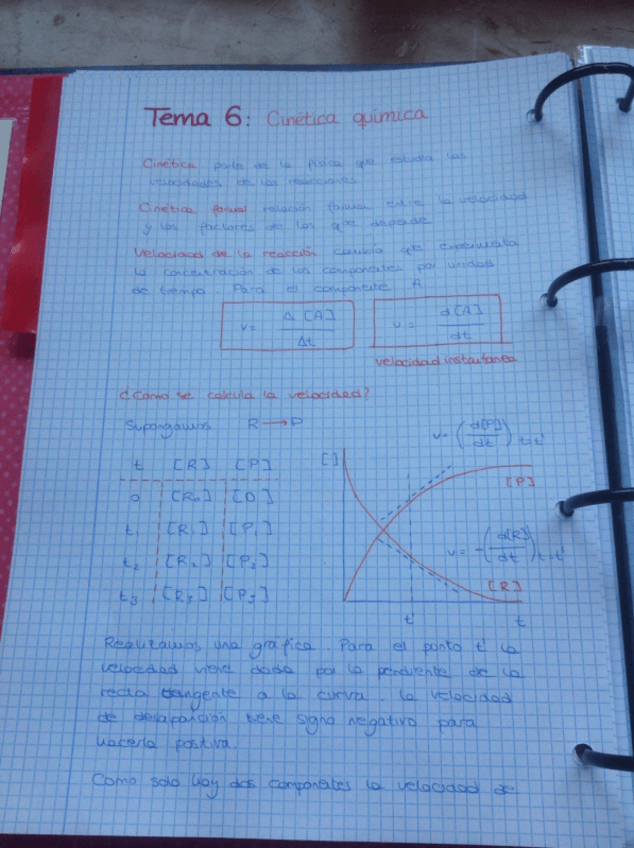 Tema 6: Cinética química
Cinética parte de la física que estudia las
velocidades de las reacciones
Cinética formal relación formal entre la velocidad
y los factores de los que depende
Velocidad de la reacción cambio que experimenta
la concentración de los componentes por unidad
de tiempo. Para el componente A
v = Δ[A] / Δt
v = d[A] / dt
velocidad instantanea
¿Como se calcula la velocidad?
Supongamos R → P
t [R] [P]
0 [R₀] [0]
t₁ [R₁] [P₁]
t₂ [R₂] [P₂]
t₃ [R₃] [P₃]
[ ]
v = (d[P] / dt) t=t'
[P]
v = -(d[R] / dt) t=t'
[R]
t' t
Realizamos una gráfica. Para el punto t' la
velocidad viene dada por la pendiente de la
recta tangente a la curva. La velocidad
de desaparición tiene signo negativo para
hacerla positiva.
Como solo hay dos componentes la velocidad de